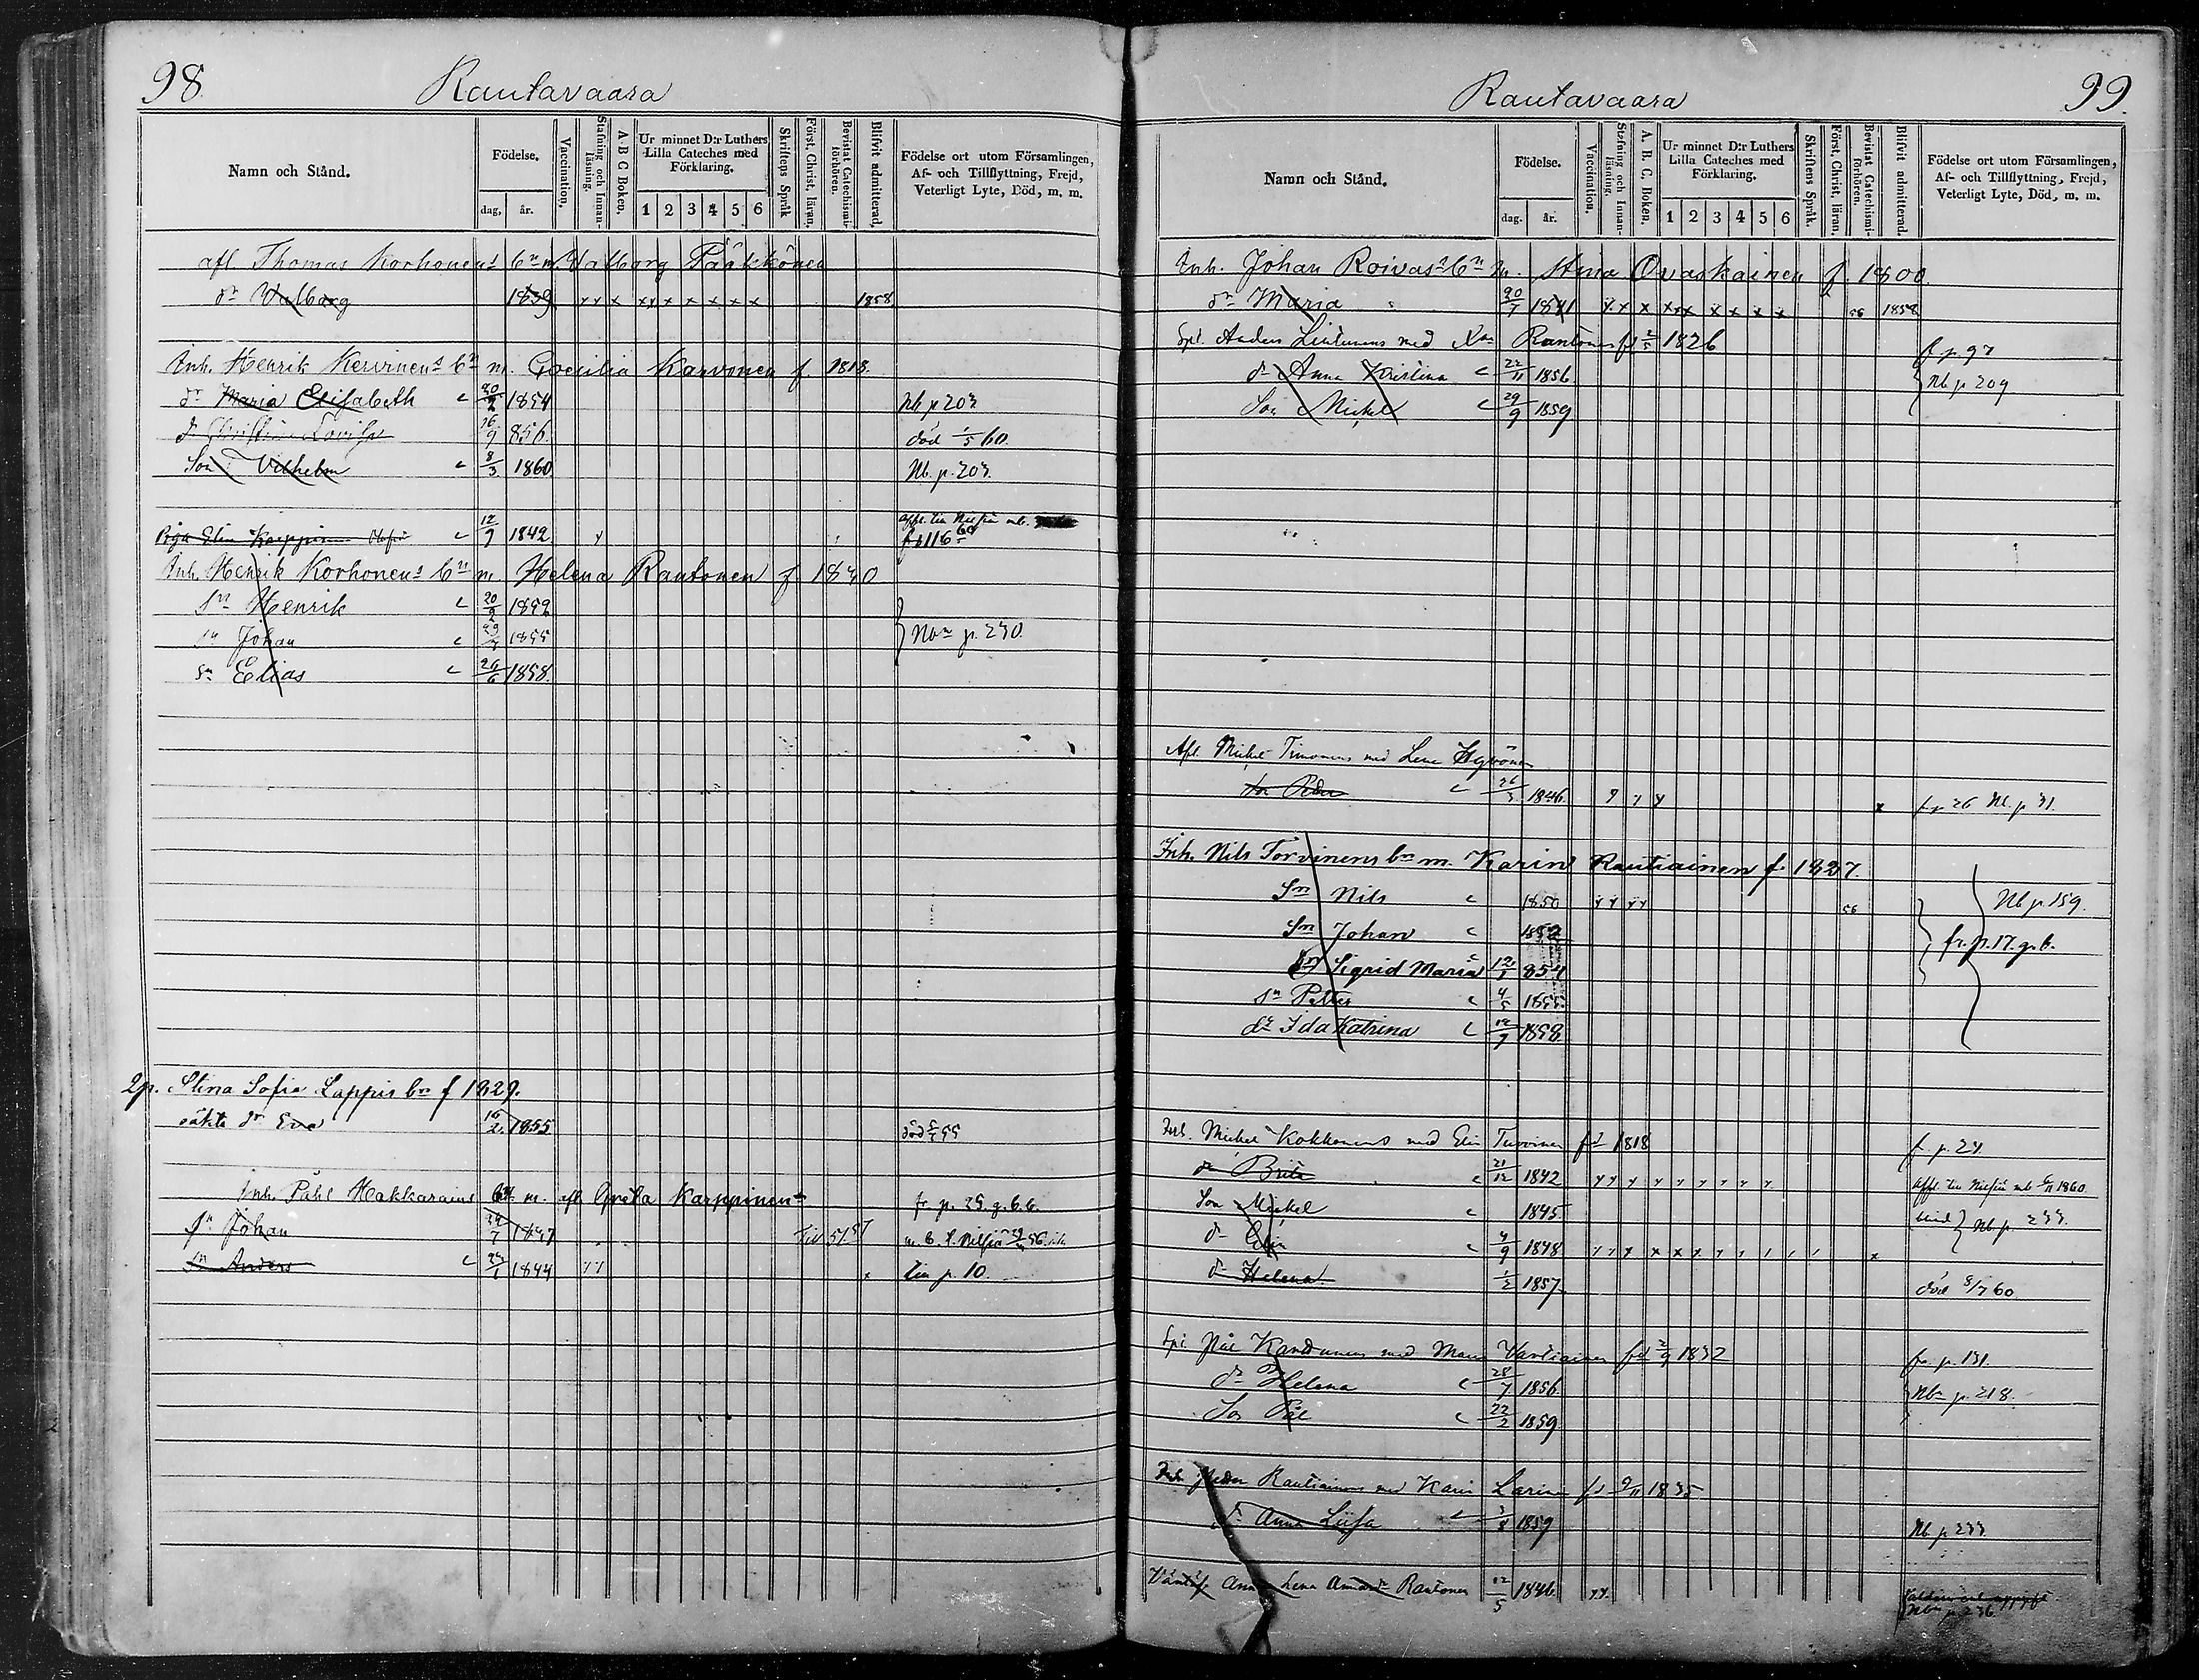 98.
Rantavaara
Namn och Stånd.
Födelse.
dag,
år.
Vaccination.
Stafning och Innanläsning.
A B C Boken.
Ur minnet D:r Luthers Lilla Cateches med Förklaring.
1 2 3 4 5 6
Skriftens Språk
Först. Christ. läran.
Bevistat Catechismi-förhören.
Blifvit admitterad.
Födelse ort utom Församlingen,
Af- och Tillflyttning, Frejd,
Veterligt Lyte, Död, m. m.
afl. Thomas Korhonens bn m. Valborg Pääkkönen
dr Walborg 1839 x x x x x x x x x x 1858
Inh. Henrik Kervinens bn m. Caecilia Karvonen f. 1818.
dr Maria Elisabeth c 20/2 1854 Nb p 203
dr Christina Lovisa 16/9 856. död 1/5 60.
Son Vilhelm c 8/3 1860 Nb. p. 203.
Piga Elin Karppinen c 12/9 1842
Inh. Henrik Korhonens bn m. Helena Rautonen f 1830
sn Henrik c 20/2 1852
sn Johan c 1855 Nbn p. 230.
sn Elias c 26/6 1858.
2p. Stina Sofia Lappis bn f 1829.
oäkta dr Eva 16/2 1855 död 55
Inh. Påhl Hakkarains bn m. afl Greta Karppinen
fr. p. 25. g. b.
sn Johan 7 1837
sn Anders c 1844 till p. 10.
99.
Rantavaara
Namn och Stånd.
Födelse.
dag.
år.
Vaccination.
Stafning och Innanläsning.
A. B. C. Boken.
Ur minnet D:r Luthers Lilla Cateches med Förklaring.
1 2 3 4 5 6
Skriftens Språk.
Först. Christ. läran.
Bevistat Catechismi-förhören.
Blifvit admitterad.
Födelse ort utom Församlingen,
Af- och Tillflyttning, Frejd,
Veterligt Lyte, Död, m. m.
Inh. Johan Roivas bn m. Stina Ovaskainen f 1800.
dr Maria 20/7 1841 x x x x x x x x x x 56 1858
Spt. Anders Lintunens med Rautonen fd 1826 f p. 97
dr Anna Kristina c 22/11 1856 Nb p 209
Son Mickel c 29/9 1859
Afl. Mickel Timonens med Lena Hyvönen
son Peder c 26/3 1846 fr p 26 Nb. p 31.
Inh. Nils Torvinens bn m. Karin Rautiainen f. 1827.
Sn Nils c 1850 56 Nb p 159.
Sn Johan c 1852 fr. p. 17. g. b.
dr Sigrid Maria c 12/1 854
sn Petter c 4/5 1855
dr Ida Katrina c 1858
Inh. Mickel Kokkonens med Elin Turvinen fd 1818 f. p. 24
dr Brita c 21/12 1842
Son Mickel c 1845
dr Elin c 4/9 1848 Nb p.
dr Helena 1/2 1857 död 8/7 60
Vartiainen fd 2/9 1832
dr Helena c 28/7 1856 Nbn p. 218.
Son Pål c 22/2 1859
Inh. Peder Rautiainens med Karin Larinen fd 2/11 1835
dr Anna Liisa c 1859 Nb p 233
Anna Lena Rautonen 12/5 1846.
Nbn p 236